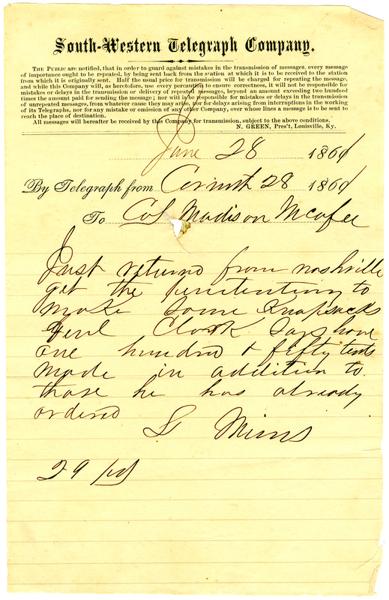 South-Western Telegraph Company.
THE PUBLIC are notified, that in order to guard against mistakes in the transmission of messages, every message
of importance ought to be repeated, by being sent back from the station at which it is to be received to the station
from which it is originally sent. Half the usual price for transmission will be charged for repeating the message,
and while this Company will, as heretofore, use every precaution to ensure correctness, it will not be responsible for
mistakes or delays in the transmission or delivery of repeated messages, beyond an amount exceeding two hundred
times the amount paid for sending the message; nor will it be responsible for mistakes or delays in the transmission
of unrepeated messages, from whatever cause they may arise, nor for delays arising from interruptions in the working
of its Telegraphs, nor for any mistake or omission of any other Company, over whose lines a message is to be sent to
reach the place of destination.
All messages will hereafter be received by this Company for transmission, subject to the above conditions.
N. GREEN, Pres't, Louisville, Ky.
June 28 1861
By Telegraph from Corinth 28 1861
To Col Madison McAfee
Just returned from nashville
got the penitentiary to
make some Knapsacks
Genl Clark says have
one hundred & fifty tents
made in addition to
those he has already
ordered
L Mims
29 pd